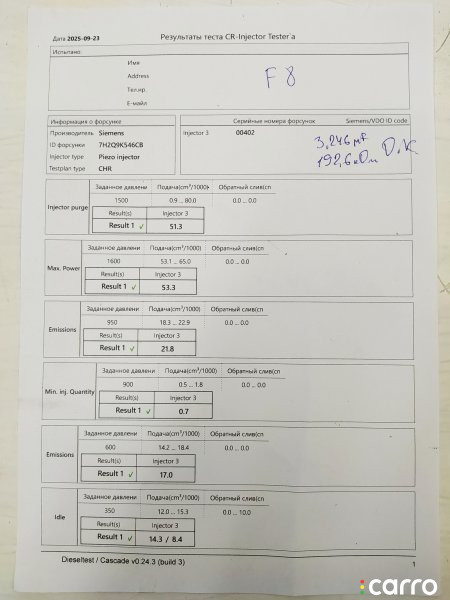 Дата 2025-09-23
Результаты теста CR-Injector Tester'a
Испытано:
Имя
Address
Тел.нр.
Е-майл
F 8
Информация о форсунке
Производитель Siemens
ID форсунки 7H2Q9K546CB
Injector type Piezo injector
Testplan type CHR
Серийные номера форсунок Siemens/VDO ID code
Injector 3 00402
3,246 мf
192,6 кОм О.К
Injector purge
Заданное давлени Подача(cm³/1000)‹ Обратный слив(сп
1500 0.9 .. 80.0 0.0 .. 0.0
Result(s) Injector 3
Result 1 ✓ 51.3
Max. Power
Заданное давлени Подача(cm³/1000) Обратный слив(сп
1600 53.1 .. 65.0 0.0 .. 0.0
Result(s) Injector 3
Result 1 ✓ 53.3
Emissions
Заданное давлени Подача(cm³/1000) Обратный слив(сп
950 18.3 .. 22.9 0.0 .. 0.0
Result(s) Injector 3
Result 1 ✓ 21.8
Min. inj. Quantity
Заданное давлени Подача(cm³/1000) Обратный слив(сп
900 0.5 .. 1.8 0.0 .. 0.0
Result(s) Injector 3
Result 1 ✓ 0.7
Emissions
Заданное давлени Подача(cm³/1000) Обратный слив(сп
600 14.2 .. 18.4 0.0 .. 0.0
Result(s) Injector 3
Result 1 ✓ 17.0
Idle
Заданное давлени Подача(cm³/1000) Обратный слив(сп
350 12.0 .. 15.3 0.0 .. 10.0
Result(s) Injector 3
Result 1 ✓ 14.3 / 8.4
Dieseltest / Cascade v0.24.3 (build 3) 1
carro